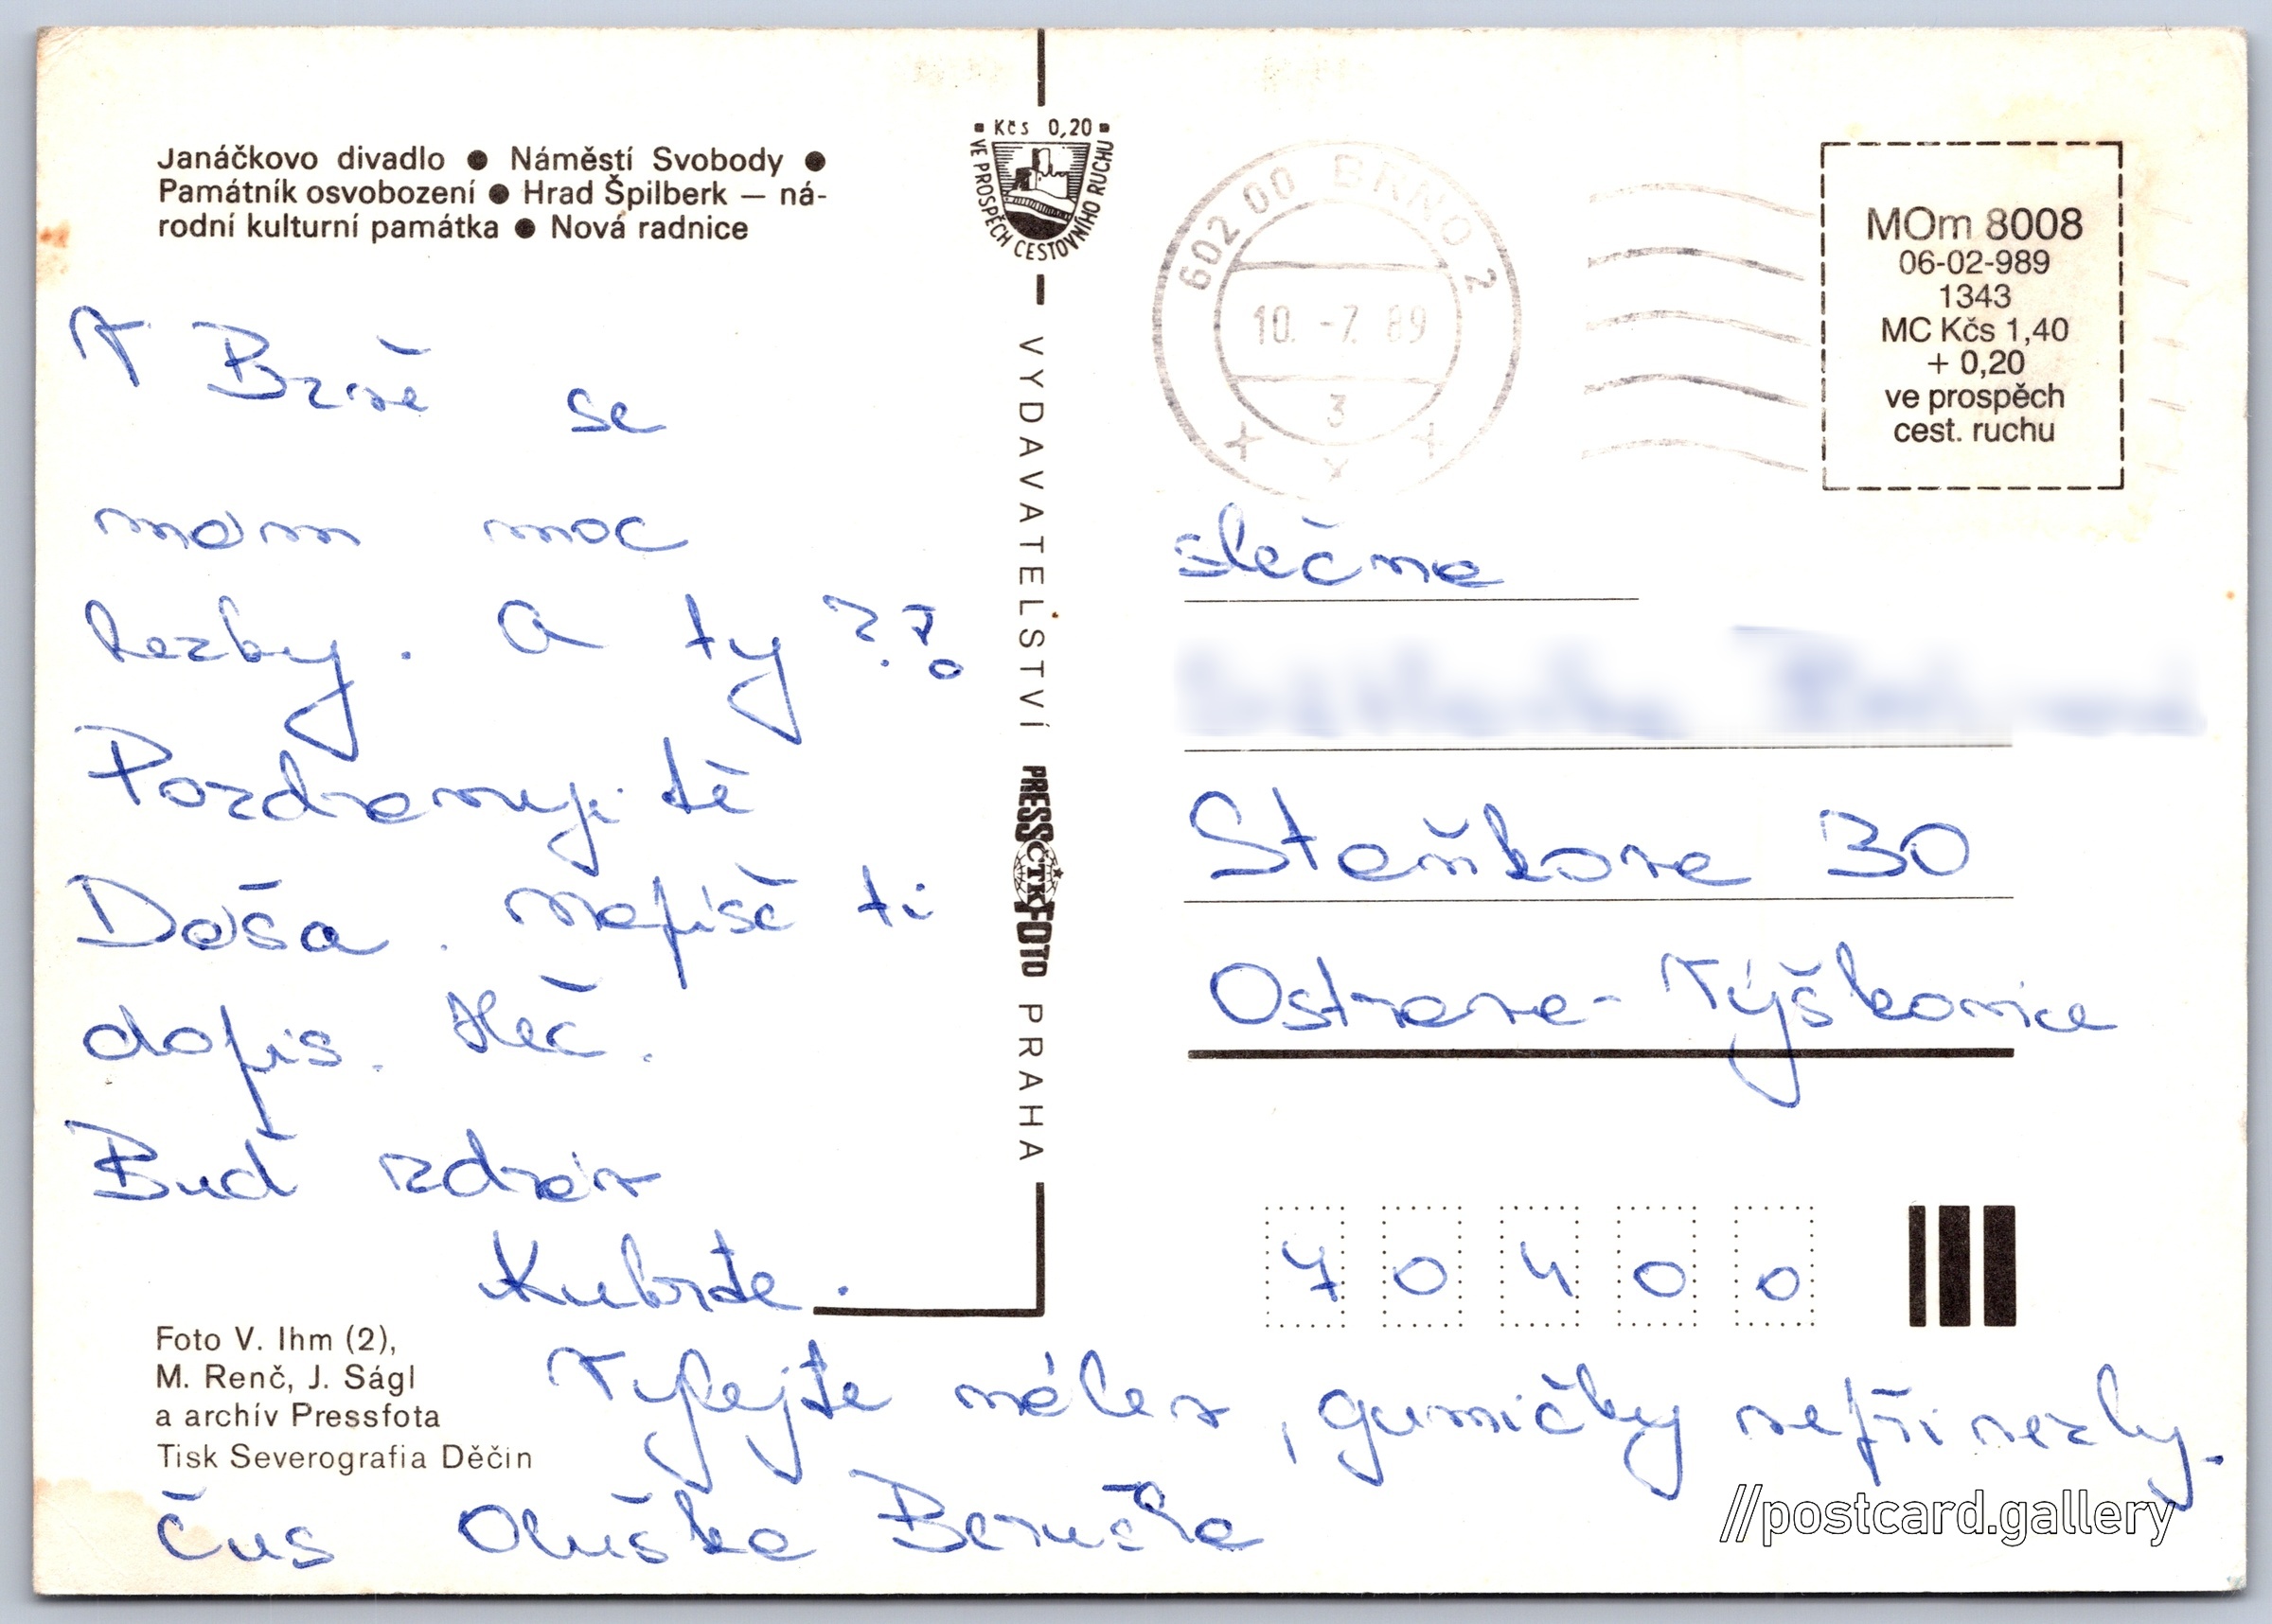 Janáčkovo divadlo ● Náměstí Svobody ●
Památník osvobození ● Hrad Špilberk — ná-
rodní kulturní památka ● Nová radnice
V Brně se
mám moc
hezky. A ty ??
Pozdravuji tě
Dáša. Nepíšeš ti
dopis. Heč.
Buď zdráv
Foto V. Ihm (2),
M. Renč, J. Ságl
a archív Pressfota
Tisk Severografia Děčín
Vylejte nálev, gumičky nepřivezly.
Čus Oluška
Kčs 0,20
VE PROSPĚCH CESTOVNÍHO RUCHU
VYDAVATELSTVÍ PRESSFOTO ČTK PRAHA
602 00 BRNO 2
10. -7. 89
3
MOm 8008
06-02-989
1343
MC Kčs 1,40
+ 0,20
ve prospěch
cest. ruchu
slečna
Staňkova 30
Ostrava- Výškovice
70400
//postcard.gallery